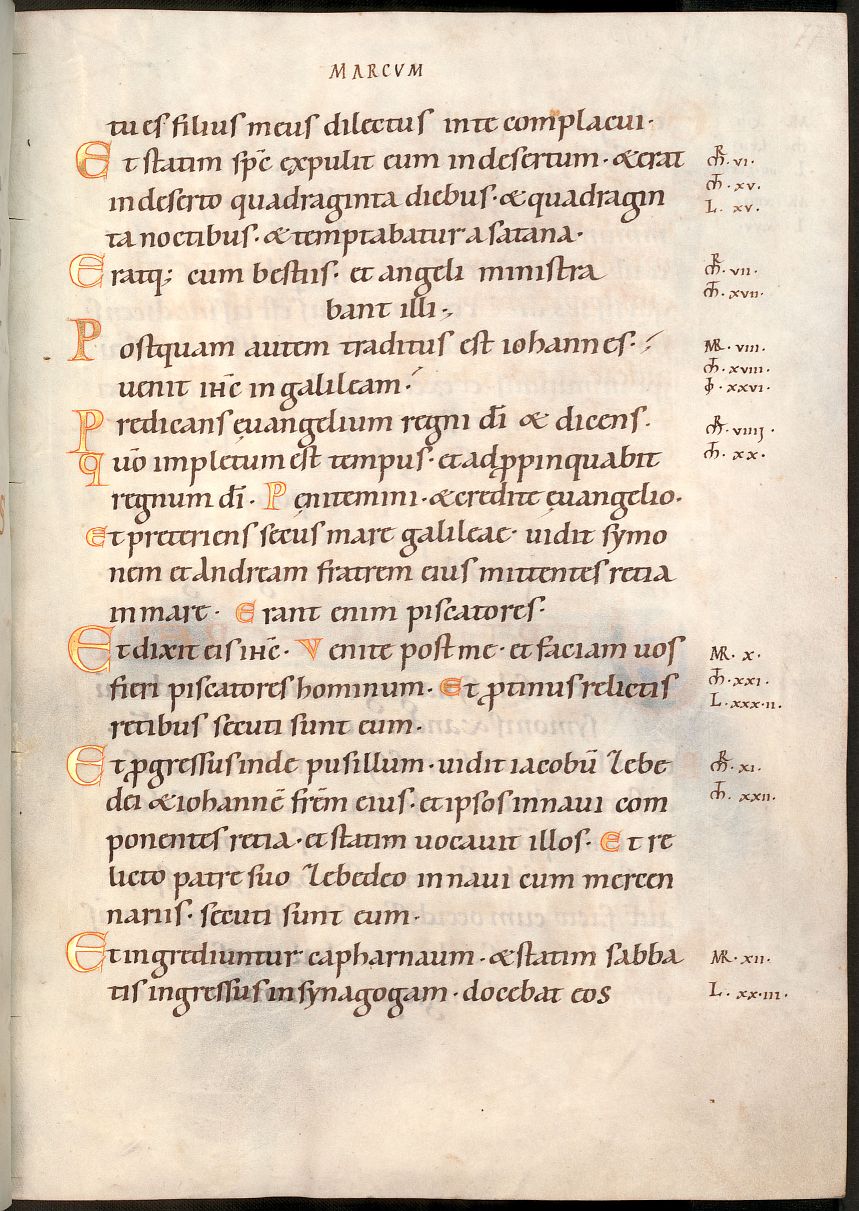 MARCVM
tu es filius meus dilectus in te complacui·
Et statim spc̄ expulit eum in desertum· & erat
in deserto quadraginta diebus· & quadragin
ta noctibus· & temptabatur a satana·
Eratq; cum bestiis· et angeli ministra
bant illi·
Postquam autem traditus est iohannes·
uenit ihc̄ in galileam·
Predicans euangelium regni dī & dicens·
quō impletum est tempus· et adppinquabit
regnum dī· Penitemini· & credite euangelio·
Et preteriens secus mare galileae· uidit symo
nem et Andream fratrem eius mittentes retia
in mare· Erant enim piscatores·
Et dixit eis ihc̄· Venite post me· et faciam uos
fieri piscatores hominum· Et ptinus relictis
retibus secuti sunt eum·
Et pgressus inde pusillum· uidit iacobū Zebe
dei & iohannē frēm eius· et ipsos in naui com
ponentes retia· et statim uocauit illos· Et re
licto patre suo Zebedeo in naui cum mercen
nariis· secuti sunt eum·
Et ingrediuntur capharnaum· & statim sabba
tis ingressus in synagogam· docebat eos
MR·vi·
MT·xv·
L·xv·
MR·vii·
MT·xvii·
MR·viii·
MT·xviii·
xxvi·
MR·viiij·
MT·xx·
MR·x·
MT·xxi·
L·xxx·ii·
MR·xi·
MT·xxii·
MR·xii·
L·xx·iii·